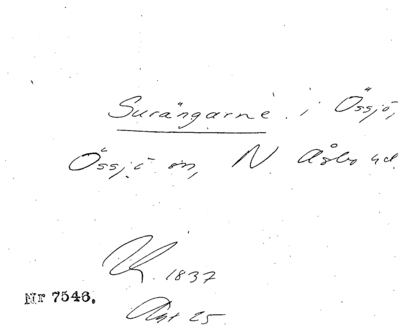 Surängarne i Össjö,
Össjö sn, N Åsbo hd.
1837
Nr 7546.
Akt 25